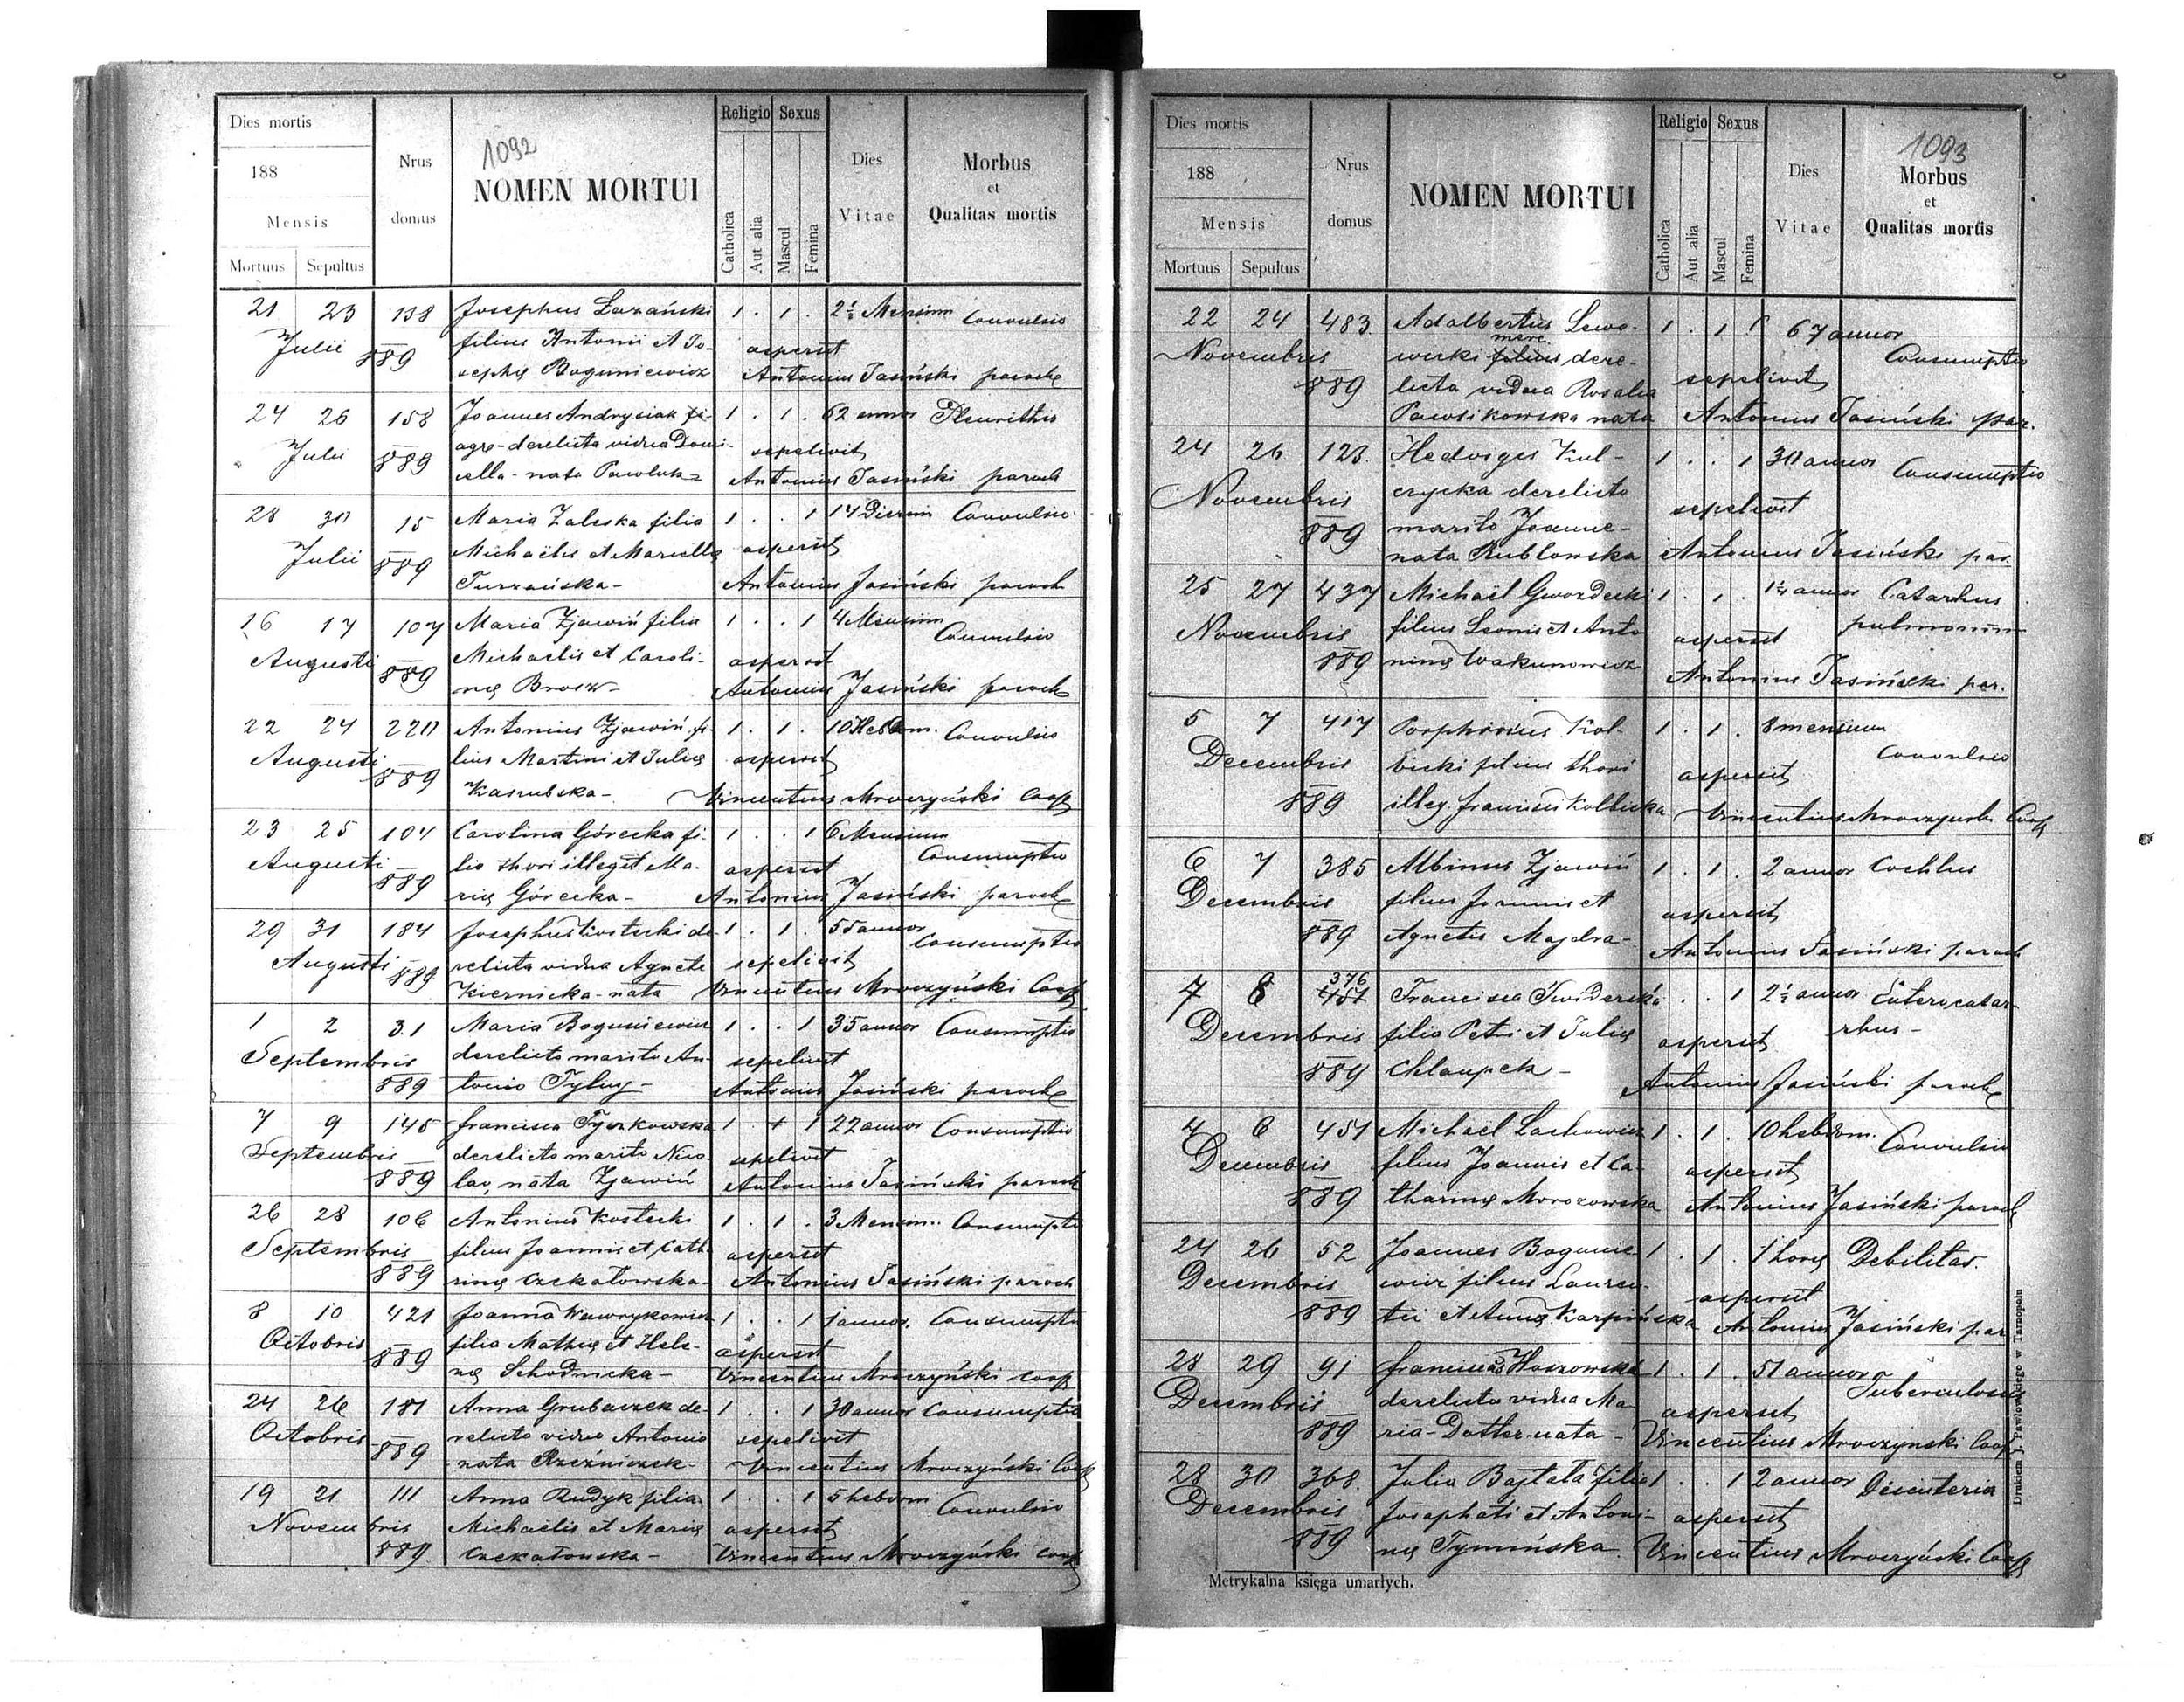 1092
Dies mortis
188
Mensis
Mortuus Sepultus
Nrus domus
NOMEN MORTUI
Religio Sexus
Catholica Aut alia Mascul Femina
Dies Vitae
Morbus et Qualitas mortis
21 23 138 Josephus Łazański 1 . 1 . 2½ Mensium Convulsio
Julii filius Antonii et Jo- aspersit
889 sephę Boguniewicz Antonius Jasiński paroch
24 26 158 Joannes Andrysiak 1 . 1 . 62 annor Pleurithis
Julii agr- derelicta vidua Dani- sepelivit
889 ella - nata Pawluk Antonius Jasiński paroch
28 30 15 Maria Zaleska filia 1 . . 1 14 Dierum Convulsio
Julii Michaëlis et Mariellę aspersit
889 Turzańska - Antonius Jasiński paroch
16 17 107 Maria Zjawiń filia 1 . . 1 4 Mensium Convulsio
Augusti Michaelis et Caroli- aspersit
889 nę Brosz - Antonius Jasiński paroch
22 24 220 Antonius Zjawiń fi- 1 . 1 . 10 Hebdom. Convulsio
Augusti lius Martini et Julię aspersit
889 Kaszubska - Vincentius Mroczyński Coop
23 25 104 Carolina Górecka fi- 1 . . 1 6 Mensium Consumptio
Augusti lia thori illegit Ma- aspersit
889 rię Górecka - Antonius Jasiński paroch
29 31 184 Josephus Kostecki de- 1 . 1 . 55 annor Consumptio
Augusti relicta vidua Agnete sepelivit
889 Kiernicka - nata Vincentius Mroczyński Coop
1 2 31 Maria Boguniewicz 1 . . 1 35 annor Consumptio
Septembris derelicto marito An- sepelivit
889 tonio Antonius Jasiński paroch
7 9 145 Francisca Tyszkowska 1 . + 1 22 annor Consumptio
Septembris derelicto marito Nico- sepelivit
889 lao, nata Zjawiń Antonius Jasiński paroch
26 28 106 Antonius Kostecki 1 . 1 . 3 Mensium Consumptio
Septembris filius Joannis et Cath- aspersit
889 rinę Czekałowska - Antonius Jasiński paroch
8 10 421 Joanna Wawrykowicz 1 . . 1 1 annor. Consumptio
Octobris filia Mathię et Hele- aspersit
889 nę Schodnicka - Vincentius Mroczyński coop
24 26 181 Anna Grubaczek de- 1 . . 1 30 annor Consumptio
Octobris relicto viduo Antonio sepelivit
889 nata Rzeźniczek - Vincentius Mroczyński Coop
19 21 111 Anna Rudyk filia 1 . . 1 5 hebdom Convulsio
Novembris Michaëlis et Marię aspersit
889 Czekałowska - Vincentius Mroczyński coop
1093
Dies mortis
188
Mensis
Mortuus Sepultus
Nrus domus
NOMEN MORTUI
Religio Sexus
Catholica Aut alia Mascul Femina
Dies Vitae
Morbus et Qualitas mortis
22 24 483 Adalbertus Lewo- 1 . 1 67 annor Consumptio
Novembris wicki filius dere-
889 licta vidua Rosalia sepelivit
Pawsikowska nata Antonius Jasiński par.
24 26 123 Hedviges Kul- 1 . . 1 30 annor Consumptio
Novembris czycka derelicto sepelivit
889 marito Joanne -
nata Rublowska Antonius Jasiński par.
25 27 437 Michaël Gwozdecki 1 . 1 . 1½ annor Catarhus
Novembris filius Leonis et Anto aspersit pulmonum
889 ninę Wakunowicz Antonius Jasiński par.
5 7 417 Porphirius Kol- 1 . 1 . 8 mensium Convulsio
Decembris bicki filius thori aspersit
889 illeg. Kolbicka Vincentius Mroczyński Coop
6 7 385 Albinus Zjawiń 1 . 1 . 2 annor Cochlus
Decembris filius Joannis et aspersit
889 Agnetis Majdra - Antonius Jasiński paroch
7 8 376 451 Francisca Świderska . . 1 2½ annor Enterocatar-
Decembris filia Petri et Julię aspersit rhus -
889 Chłaupek - Antonius Jasiński paroch
4 6 451 Michael Lachowicz 1 . 1 . 10 hebdom. Convulsio
Decembris filius Joannis et Ca- aspersit
889 tharinę Morozowska Antonius Jasiński paroch
24 26 52 Joannes Bogunie- 1 . 1 . 1 horę Debilitas.
Decembris wicz filius Lauren- aspersit
889 tii et Annę Karpińska Antonius Jasiński par
28 29 91 Franciscus Hoszowski 1 . 1 . 51 annor Tuberculosis
Decembris derelicta vidua Ma- aspersit
889 ria - Dotter - nata - Vincentius Mroczynski Coop
28 30 368. Julia Bajtała filia 1 . . 1 2 annor Disenteria
Decembris Josaphati et Antoni- aspersit
889 nę Tymińska Vincentius Mroczyński Coop
Metrykalna księga umarłych.
Drukiem J. Pawłowskiego w Tarnopolu